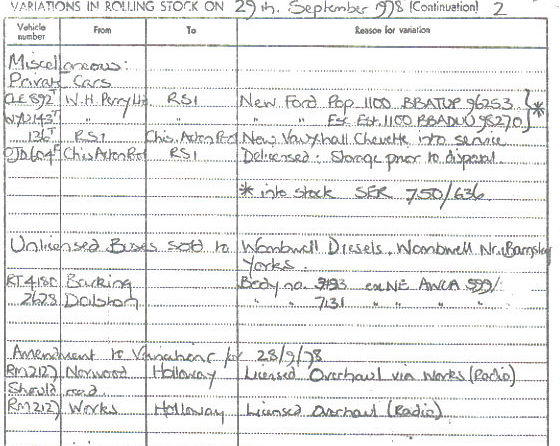 VARIATIONS IN ROLLING STOCK ON 29th. September 1978 (Continuation) 2
Vehicle number From To Reason for variation
Miscellaneous:
Private Cars
CLE 892T W.H. Perry Ltd RS1 New Ford Pop 1100 BBATUP 96253 } *
WYU 143T " " " " Esc. Est. 1100 98270 }
136T RS1 Chis. Acton Pool New Vauxhall Chevette into service
OJD 604R Chis Acton Pool RS1 Delicensed: Storage prior to disposal.
* into stock SER 750/636.
Unlicensed Buses sold to Wombwell Diesels, Wombwell Nr. Barnsley
Yorks.
RT 4180 Barking Body no. ex NE AWCA 599/
2628 Dalston " " 7131 " " " "
Amendment to Variations for 28/9/78
RM2127 Norwood Holloway Licensed Overhaul via Works (Radio)
Should read
RM2127 Works Holloway Licensed Overhaul (Radio)